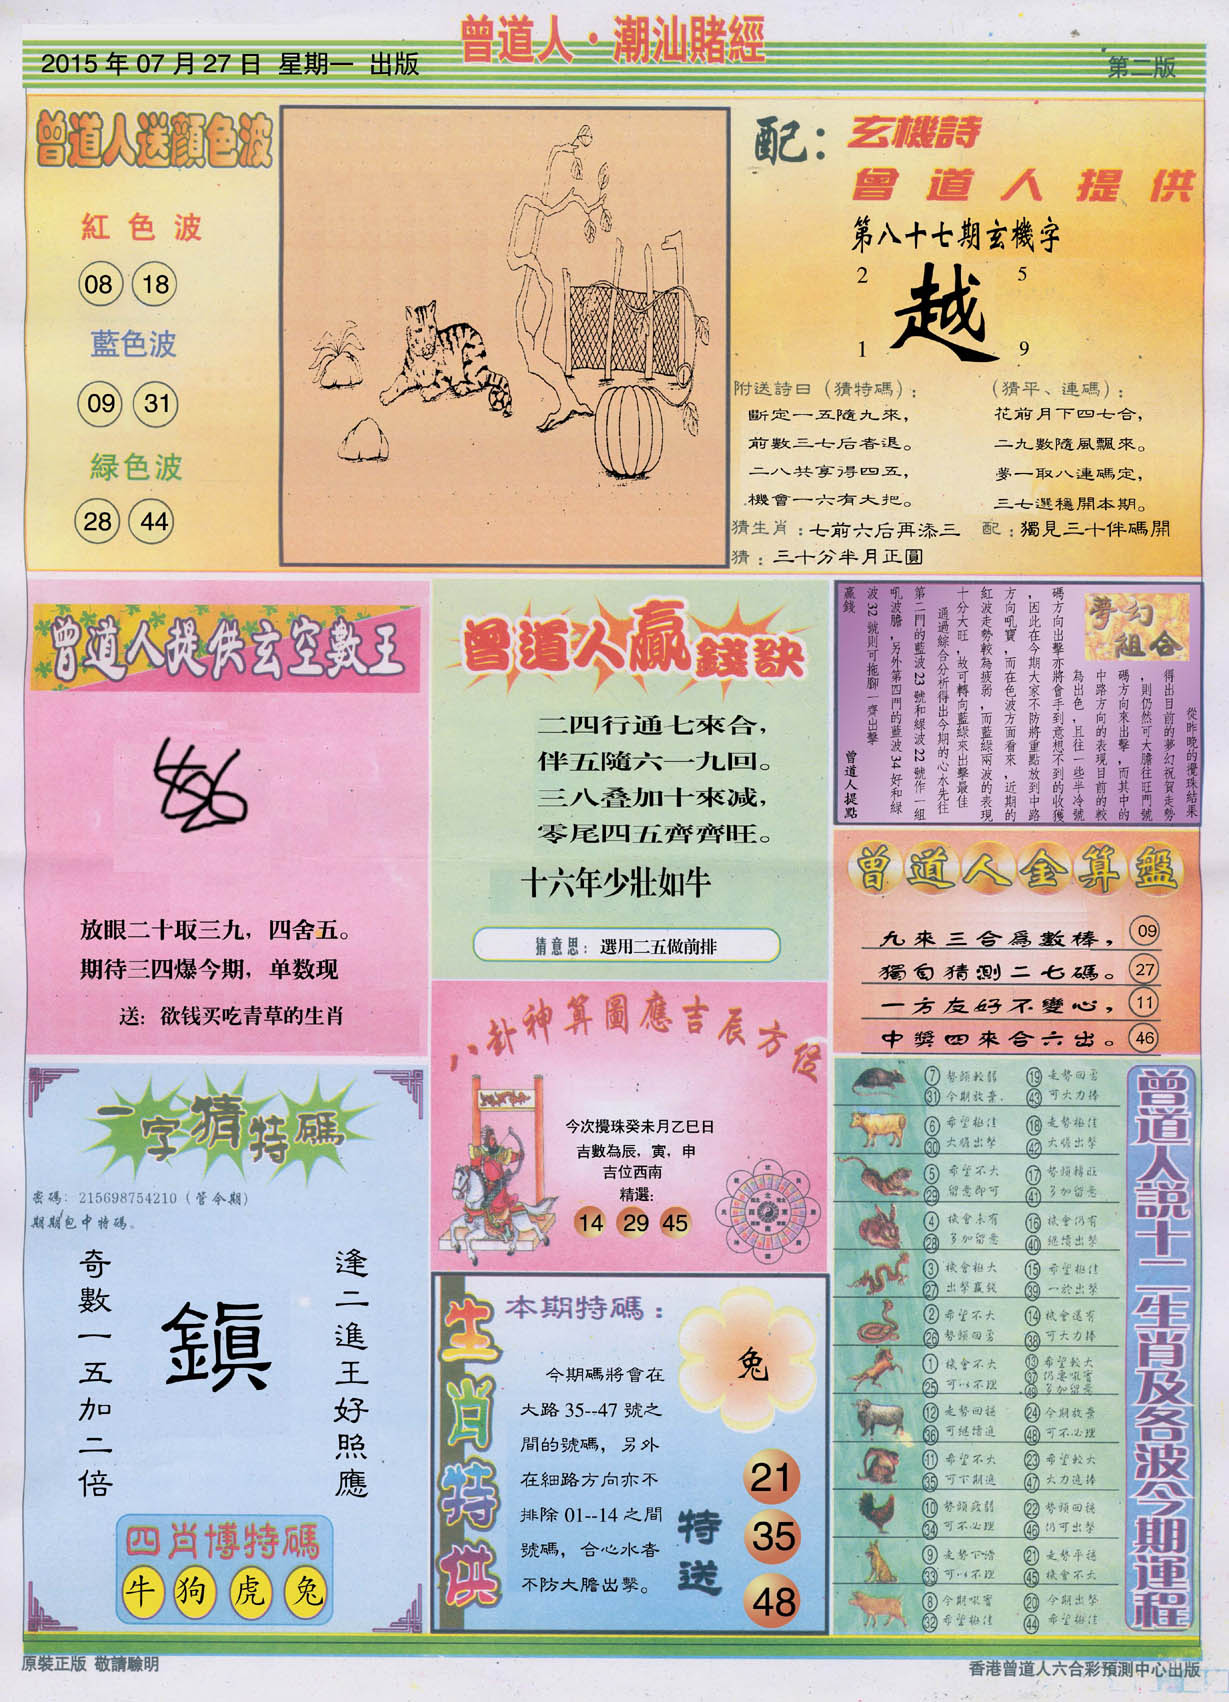 曾道人·潮汕賭經
2015年07月27日 星期一 出版
第二版
曾道人送顏色波
紅色波
08 18
藍色波
09 31
緑色波
28 44
配：玄機詩
曾道人提供
第八十七期玄機字
2 5
越
1 9
附送詩曰（猜特碼）：
斷定一五隨九來，
前數三七后者退。
二八共享得四五，
機會一六有大把。
（猜平、連碼）：
花前月下四七合，
二九數隨風飄來。
夢一取八連碼定，
三七選穩開本期。
猜生肖：七前六后再添三
配：獨見三十伴碼開
猜：三十分半月正圓
曾道人提供玄空數王
放眼二十取三九，四舍五。
期待三四爆今期，单数现
送：欲钱买吃青草的生肖
曾道人贏錢訣
二四行通七來合，
伴五隨六一九回。
三八叠加十來减，
零尾四五齊齊旺。
十六年少壯如牛
猜意思：選用二五做前排
夢幻組合
從昨晚的攪珠結果
得出目前的夢幻祝賀走勢
，則仍然可大膽往旺門號
碼方向來出擊，而其中的
中路方向的表現目前的較
為出色，且往一些半冷號
碼方向出擊亦將會手到意想不到的收獲
，因此在今期大家不防將重點放到中路
方向吼寶，而在色波方面看來，近期的
紅波走勢較為疲弱，而藍綠兩波的表現
十分大旺，故可轉向藍綠來出擊最佳
通過綜合分析得出今期的心水先往
第二門的藍波23號和綠波22號作一組
吼波膽，另外第四門的藍波34好和綠
波32號則可拖腳一齊出擊
贏錢
曾道人提點
曾道人金算盤
九來三合爲數棒， 09
獨自猜測二七碼。 27
一方友好不變心， 11
中獎四來合六出。 46
八卦神算圖應吉辰方位
今次攪珠癸未月乙巳日
吉數為辰，寅，申
吉位西南
精選：
14 29 45
一字猜特碼
密碼：215698754210（管今期）
期期包中特碼。
逢二進王好照應
鎭
奇數一五加二倍
四肖博特碼
牛 狗 虎 兔
生肖特供
本期特碼：
兔
今期碼將會在
大路35--47號之
間的號碼，另外
在細路方向亦不
排除01--14之間
號碼，合心水者
不防大膽出擊。
特送
21
35
48
曾道人說十二生肖及各波今期運程
7 勢頭較弱 19 走勢回勇
31 今期放棄 43 可大力捧
6 希望極佳 18 走勢極佳
30 大膽出擊 42 大膽出擊
5 希望不大 17 勢頭轉旺
29 留意即可 41 多加留意
4 機會未有 16 機會仍有
28 多加留意 40 繼續出擊
3 機會極大 15 希望極佳
27 出擊贏錢 39 一於出擊
2 希望不大 14 機會還有
26 勢頭回勇 38 可大力捧
1 機會不大 13 希望較大
25 可以不理 37 仍要吸實
49 多加留意
12 走勢回穩 24 今期放棄
36 可繼續追 48 可不必理
11 希望不大 23 希望較大
35 可下期追 47 大力追捧
10 勢頭疲弱 22 勢頭回穩
34 可不必理 46 仍可出擊
9 走勢下滑 21 走勢平穩
33 可以不理 45 機會不大
8 今期吸實 20 今期出擊
32 希望極佳 44 希望極佳
原裝正版 敬請驗明
香港曾道人六合彩預測中心出版